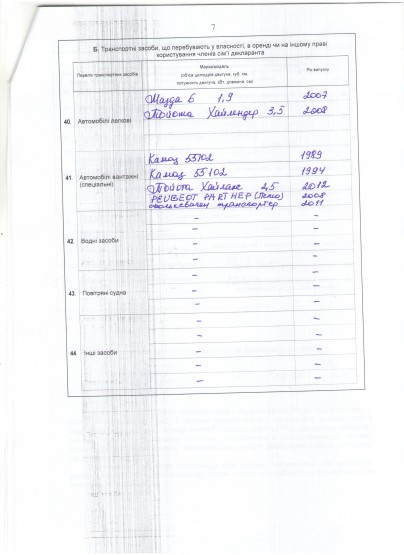 7
Б. Транспортні засоби, що перебувають у власності, в оренді чи на іншому праві
користування членів сім'ї декларанта
Перелік транспортних засобів
Марка/модель
(об'єм циліндрів двигуна, куб. см,
потужність двигуна, кВт, довжина, см)
Рік випуску
40. Автомобілі легкові
Мазда 6 1,9 2007
Тойота Хайлендер 3,5 2008
41. Автомобілі вантажні
(спеціальні)
Камаз 55102 1989
Камаз 55102 1994
Тойота Хайлакс 2,5 2012
PEUGEOT PARTNER (Пежо) 2008
фольксваген транспортер 2011
– –
42. Водні засоби
– –
– –
– –
43. Повітряні судна
– –
– –
– –
– –
44. Інші засоби
– –
– –
– –